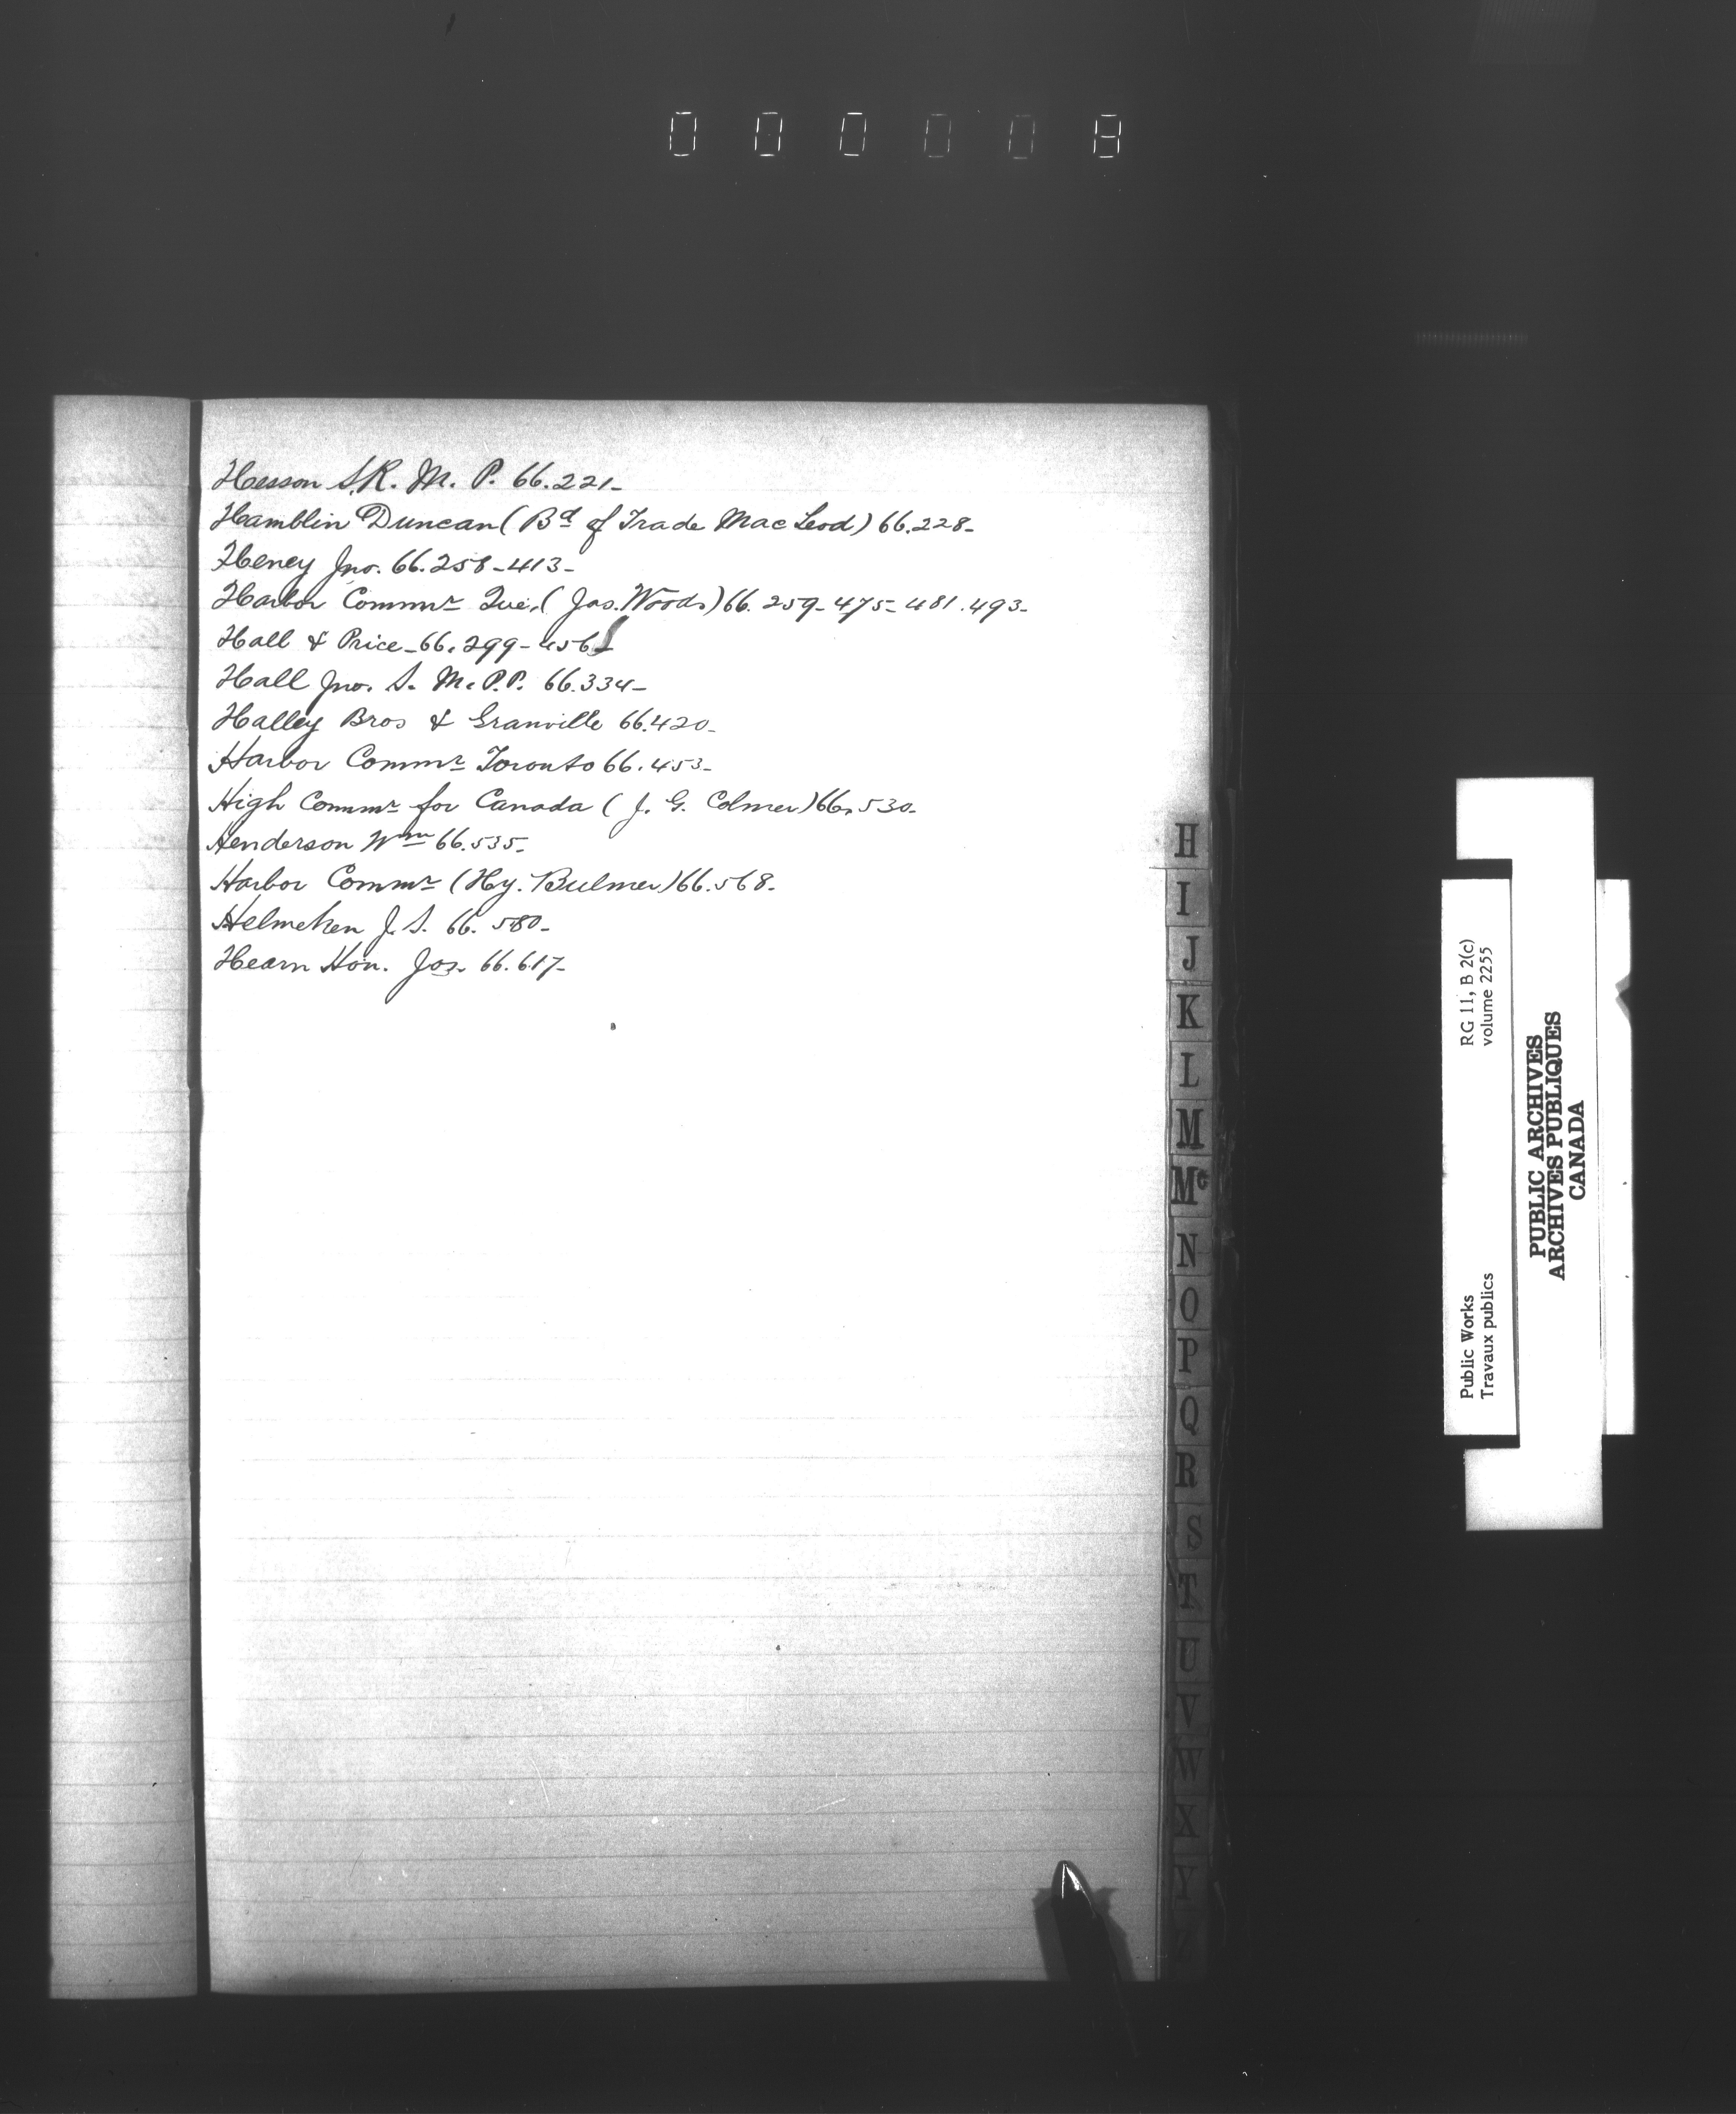 000008
Hesson S.R. M. P. 66.221-
Hamblin Duncan (Bd of Trade MacLeod) 66.228-
Heney Jno. 66.258-413-
Harbor Commrs Que, (Jas. Woods) 66.259-475-481.493-
Hall & Price-66.299-456
Hall Jno. S. M.P.P. 66.334-
Halley Bros & Granville 66.420-
Harbor Commrs Toronto 66.453-
High Commr for Canada (J. G. Colmer) 66.530-
Henderson Wm 66.535-
Harbor Commrs (Hy. Bulmer) 66.568-
Helmcken J. S. 66.580-
Hearn Hon. Jos. 66.617-
H
I
J
K
L
M
Mc
N
O
P
Q
R
S
T
U
V
W
X
Y
Z
Public Works RG 11, B 2(c)
Travaux publics volume 2255
PUBLIC ARCHIVES
ARCHIVES PUBLIQUES
CANADA